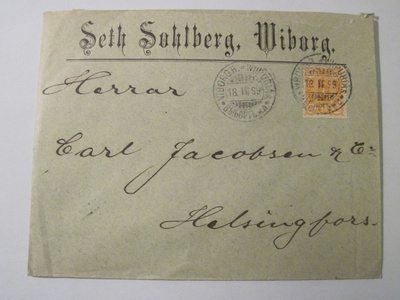 Seth Sohlberg, Wiborg.
Herrar
Carl Jacobsen & Co
Helsingfors.
18.II.99
18.II.99